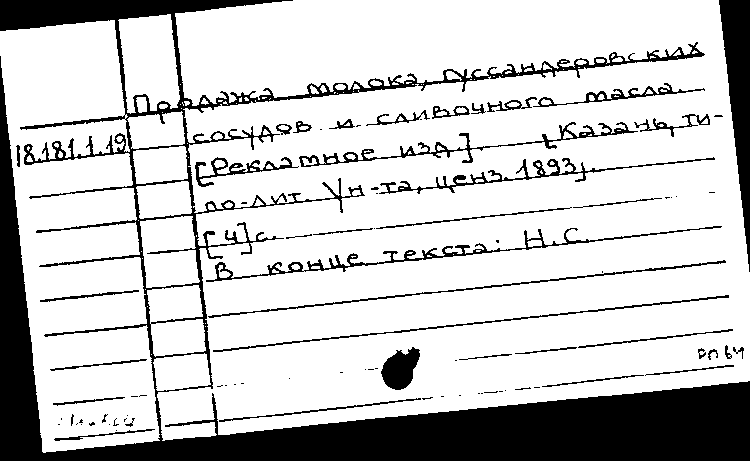 Продажа молока, гуссандеровских
18.181.1.19
сосудов и сливочного масла.
[Рекламное изд.]. [Казань, ти-
по-лит. Ун-та, ценз. 1893].
[4]с.
В конце текста: Н.С.
РП 64